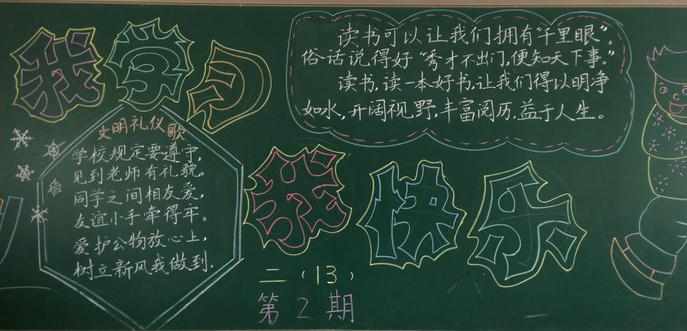 我学习
我快乐
读书可以让我们拥有"千里眼"。
俗话说得好"秀才不出门,便知天下事。"
读书,读一本好书,让我们得以明净
如水,开阔视野,丰富阅历,益于人生。
文明礼仪歌
学校规定要遵守,
见到老师有礼貌。
同学之间相友爱,
友谊小手牵得牢。
爱护公物放心上,
树立新风我做到.
二(13)
第2期